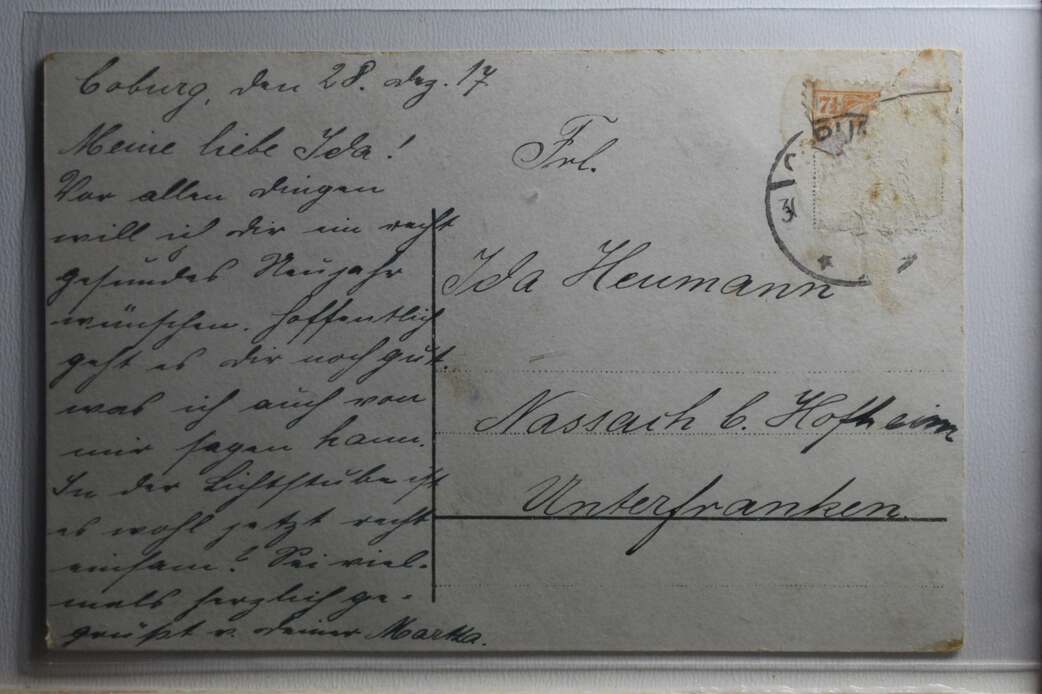 Coburg, den 28. Dez. 17
Meine liebe Ida!
Vor allen dingen
will ich dir ein recht
gesundes Neujahr
wünschen. Hoffentlich
geht es dir noch gut
was ich auch von
mir sagen kann.
In der Lichtstube ist
es wohl jetzt recht
einsam? Sei viel-
mals herzlich ge-
grüßt v. deiner Martha.
Frl.
Ida Heumann
Nassach b. Hofheim
Unterfranken
7½
30